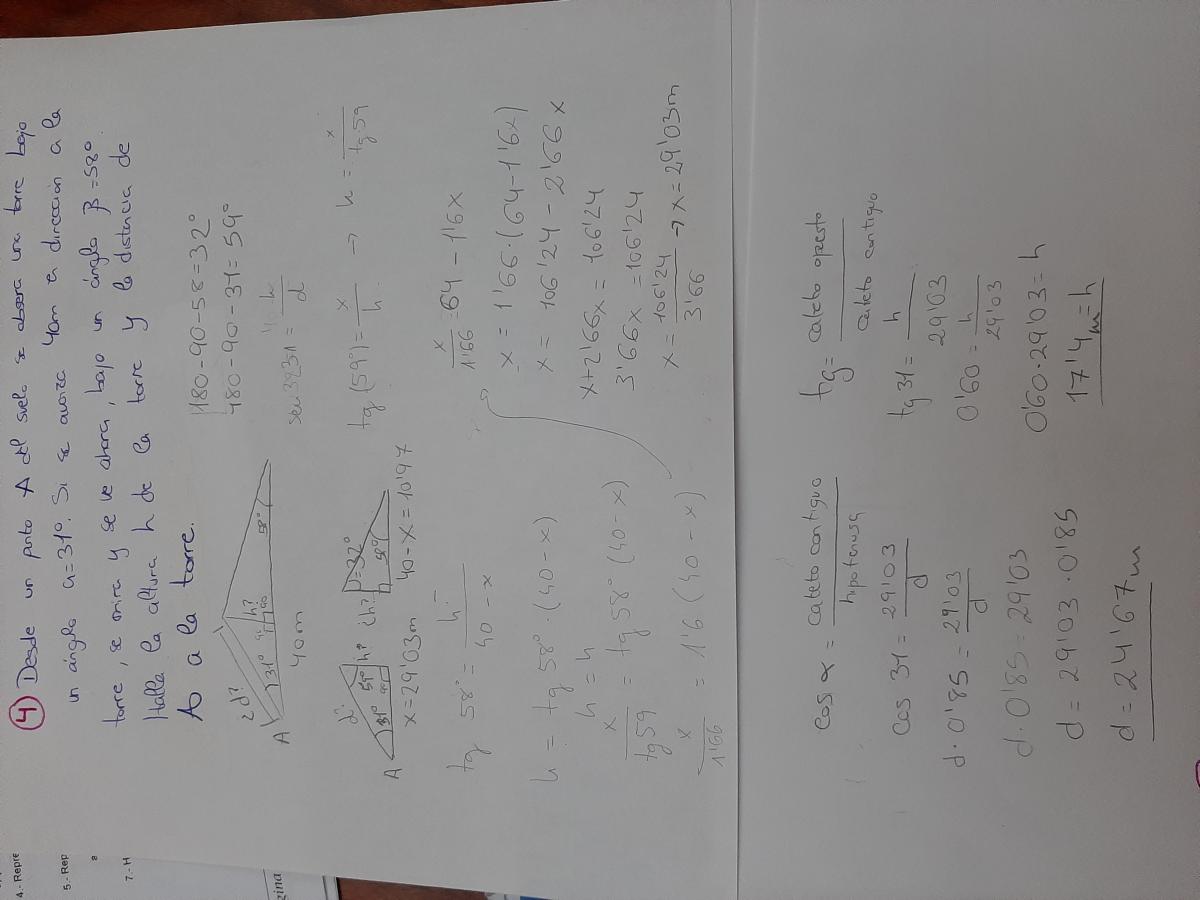 4 Desde un punto A del suelo se observa una torre bajo
un ángulo α=31º. Si se avanza 40m en dirección a la
torre, se mira y se ve ahora, bajo un ángulo β=58º
Halla la altura h de la torre y la distancia de
A a la torre.
180-90-58=32º
180-90-31=59º
¿d?
h?
31º
58º
A
40m
sen 31 = h/d
d?
59º
h?
¿h?
32º
A
31º
58º
x=29'03m
40-x=10'97
tg(59º)= x/h → h = x/tg59
tg 58º = h/40-x
h = tg 58º·(40-x)
h = h
x/tg59 = tg 58º (40-x)
x/1'66 = 1'6 (40-x)
x/1'66 = 64-1'6x
x = 1'66·(64-1'6x)
x = 106'24 - 2'66x
x+2'66x = 106'24
3'66x = 106'24
x = 106'24/3'66 → x = 29'03m
cos α = cateto contiguo/hipotenusa
cos 31 = 29'03/d
d·0'85 = 29'03/d
d·0'85 = 29'03
d = 29'03·0'85
d = 24'67m
tg = cateto opuesto/cateto contiguo
tg 31 = h/29'03
0'60 = h/29'03
0'60·29'03=h
17'4m=h
4.- Repre
5.- Rep
7.- H
gina